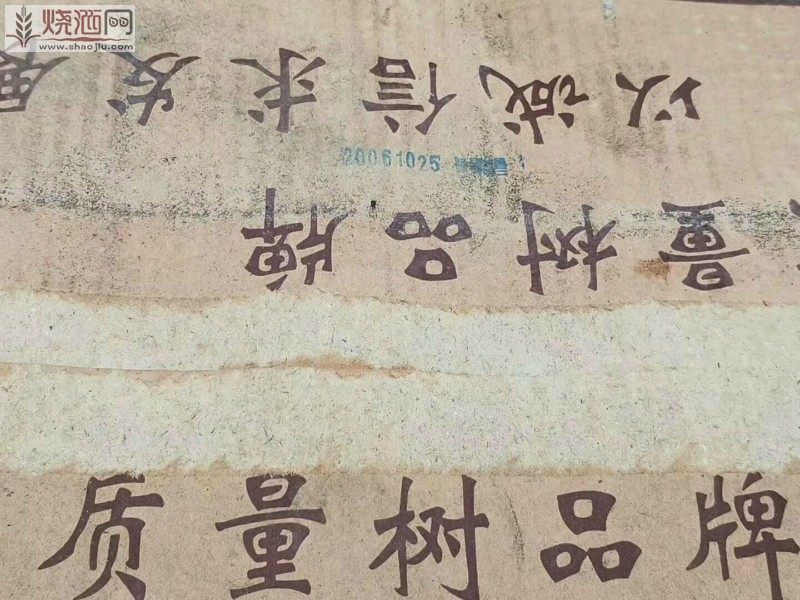 烧酒网
www.shaojiu.com
以诚信求发展
20061025
量树品牌
质量树品牌